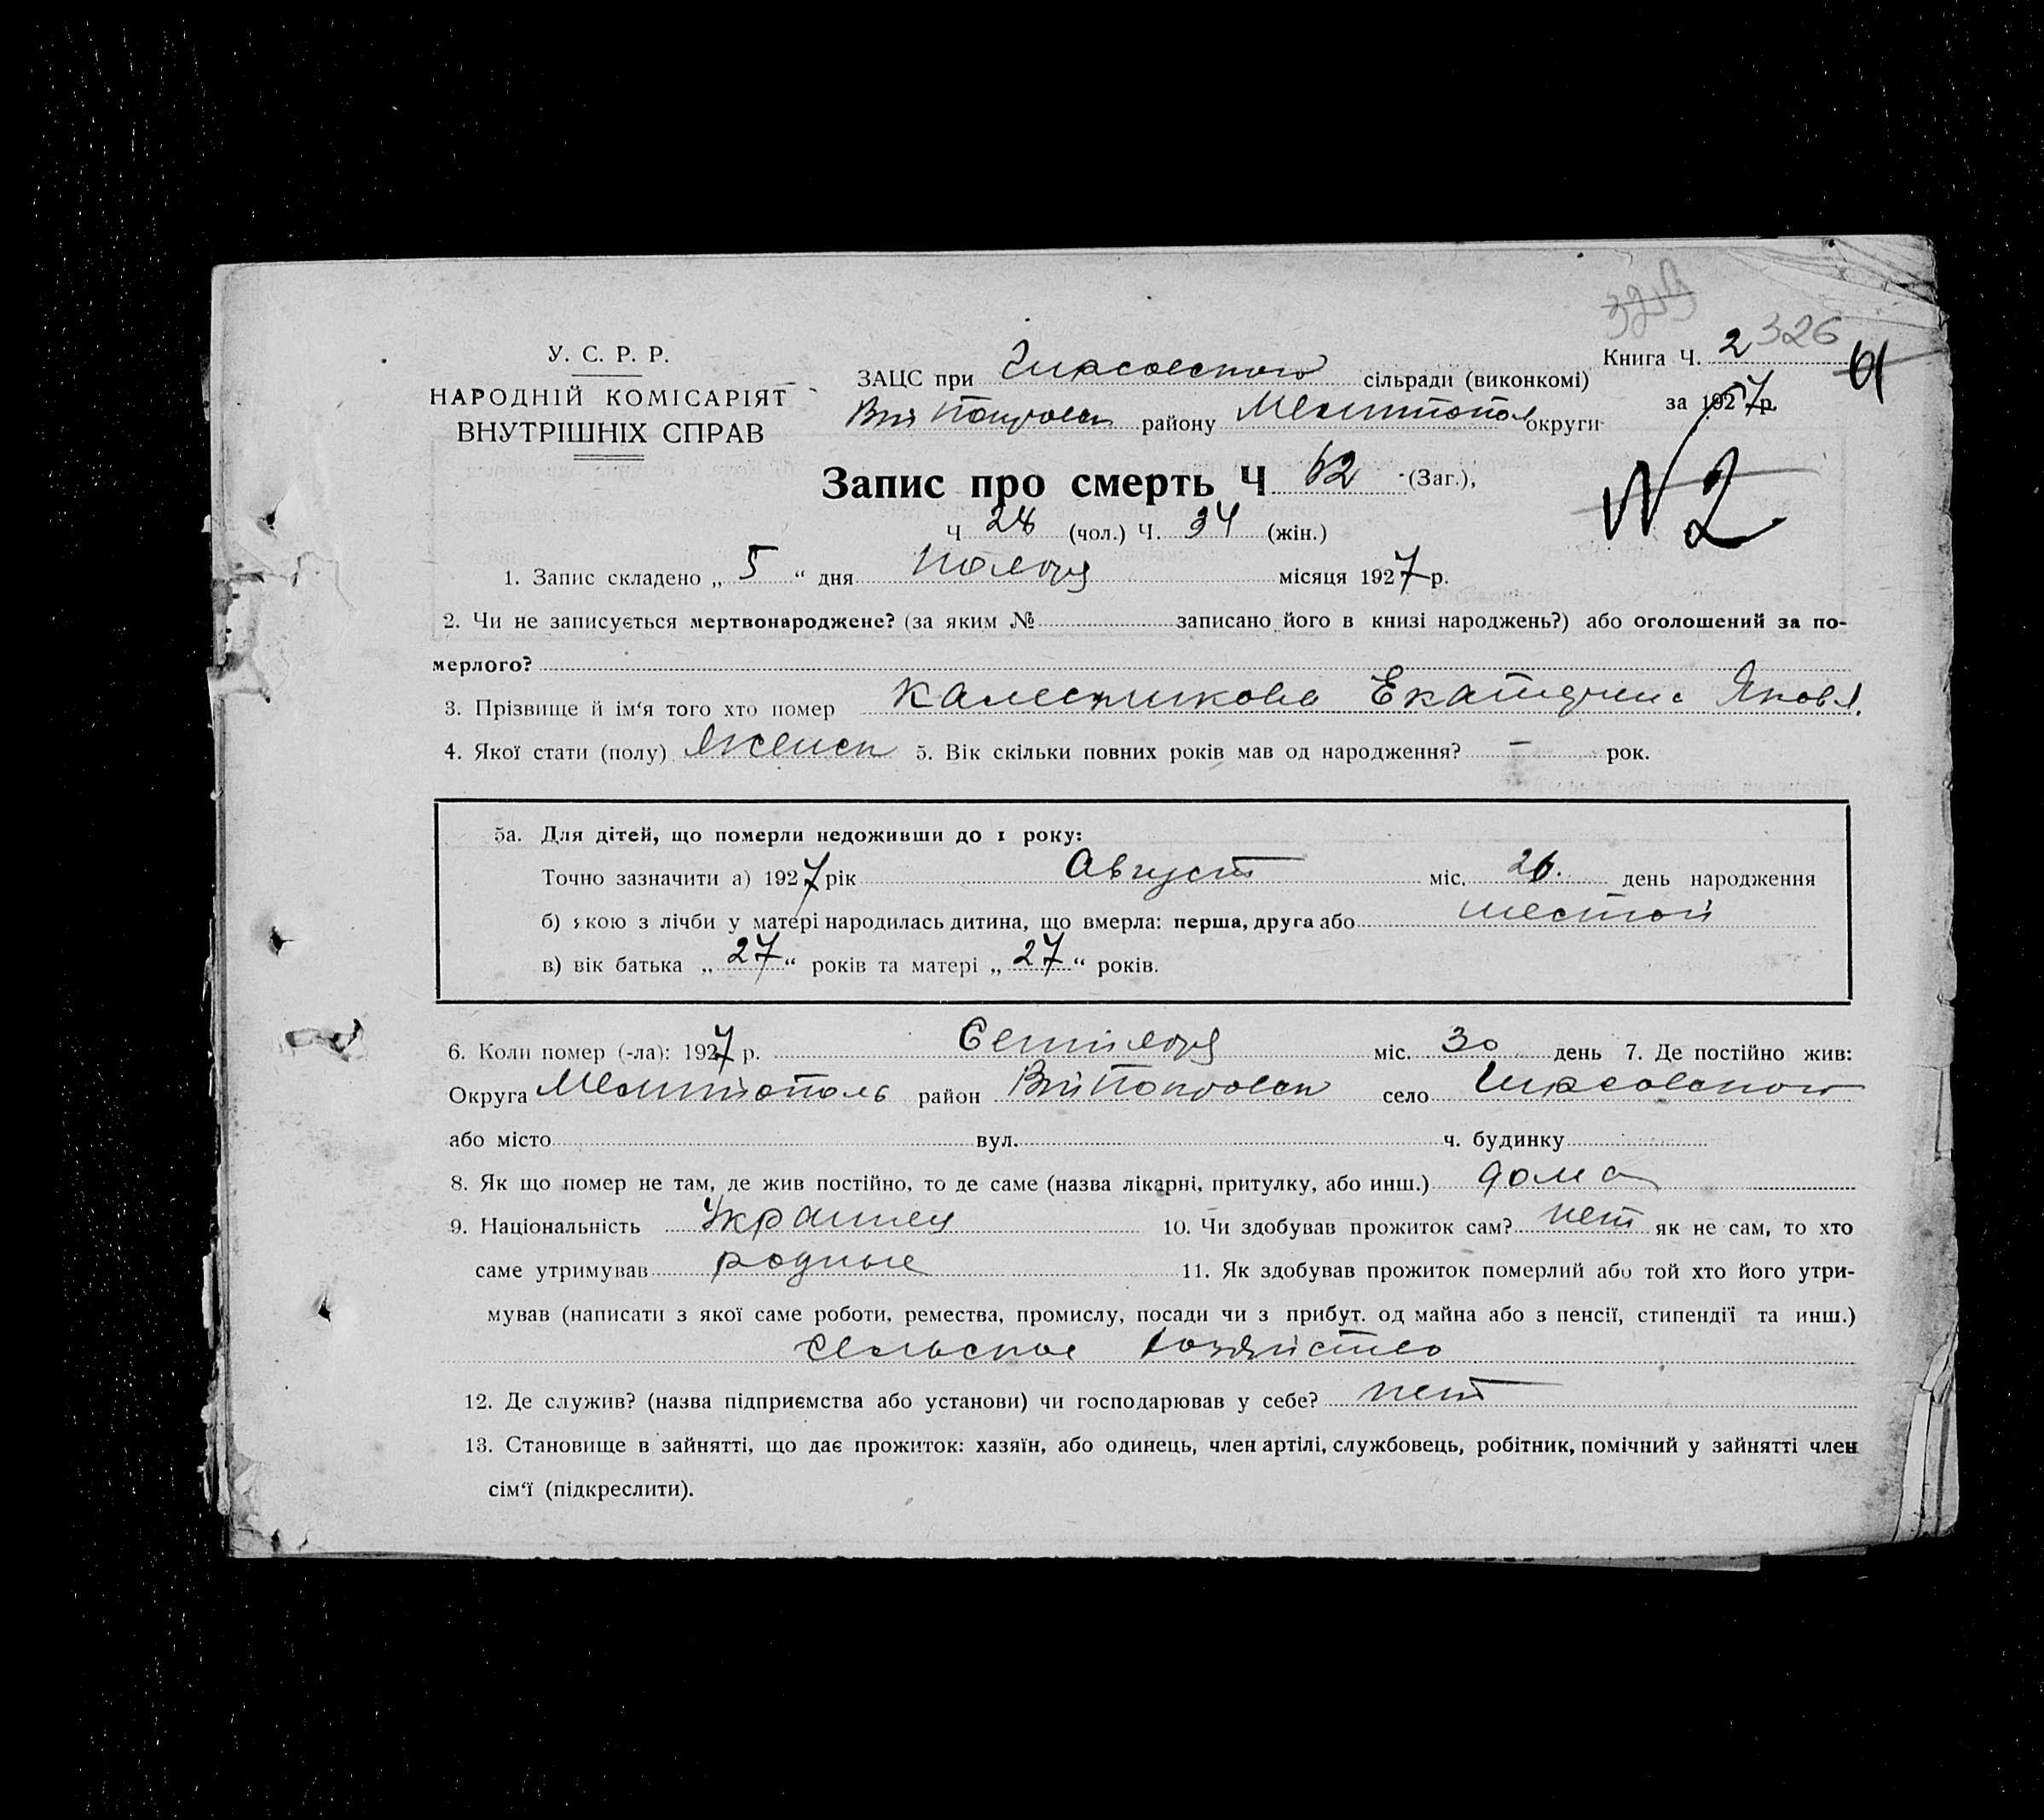 326
У. С. Р. Р.
НАРОДНІЙ КОМІСАРІЯТ
ВНУТРІШНІХ СПРАВ
ЗАЦС при Гирсовского сільради (виконкомі)
району Мелитопол округи
Книга Ч. 2
за 1927 р.
61
N 2
Запис про смерть Ч 62 (Заг.),
Ч 28 (чол.) Ч. 34 (жін.)
1. Запис складено „ 5 “ дня Ноября місяця 1927 р.
2. Чи не записується мертвонароджене? (за яким № записано його в книзі народжень?) або оголошений за по-
мерлого?
3. Прізвище й ім'я того хто помер Калесникова Екатерина Яковл.
4. Якої стати (полу) женск 5. Вік скільки повних років мав од народження? — рок.
5а. Для дітей, що померли недоживши до 1 року:
Точно зазначити а) 1927 рік Август міс. 26. день народження
б) якою з лічби у матері народилась дитина, що вмерла: перша, друга або шестой
в) вік батька „ 27 “ років та матері „ 27 “ років.
6. Коли помер (-ла): 1927 р. Сентября міс. 30 день 7. Де постійно жив:
Округа Мелитополь район село Гирсовского
або місто вул. ч. будинку
8. Як що помер не там, де жив постійно, то де саме (назва лікарні, притулку, або инш.) дома
9. Національність Украинец 10. Чи здобував прожиток сам? нет як не сам, то хто
саме утримував родные 11. Як здобував прожиток померлий або той хто його утри-
мував (написати з якої саме роботи, ремества, промислу, посади чи з прибут. од майна або з пенсії, стипендії та инш.)
сельское хозяйство
12. Де служив? (назва підприємства або установи) чи господарював у себе? нет
13. Становище в зайнятті, що дає прожиток: хазяїн, або одинець, член артілі, службовець, робітник, помічний у зайнятті член
сім'ї (підкреслити).